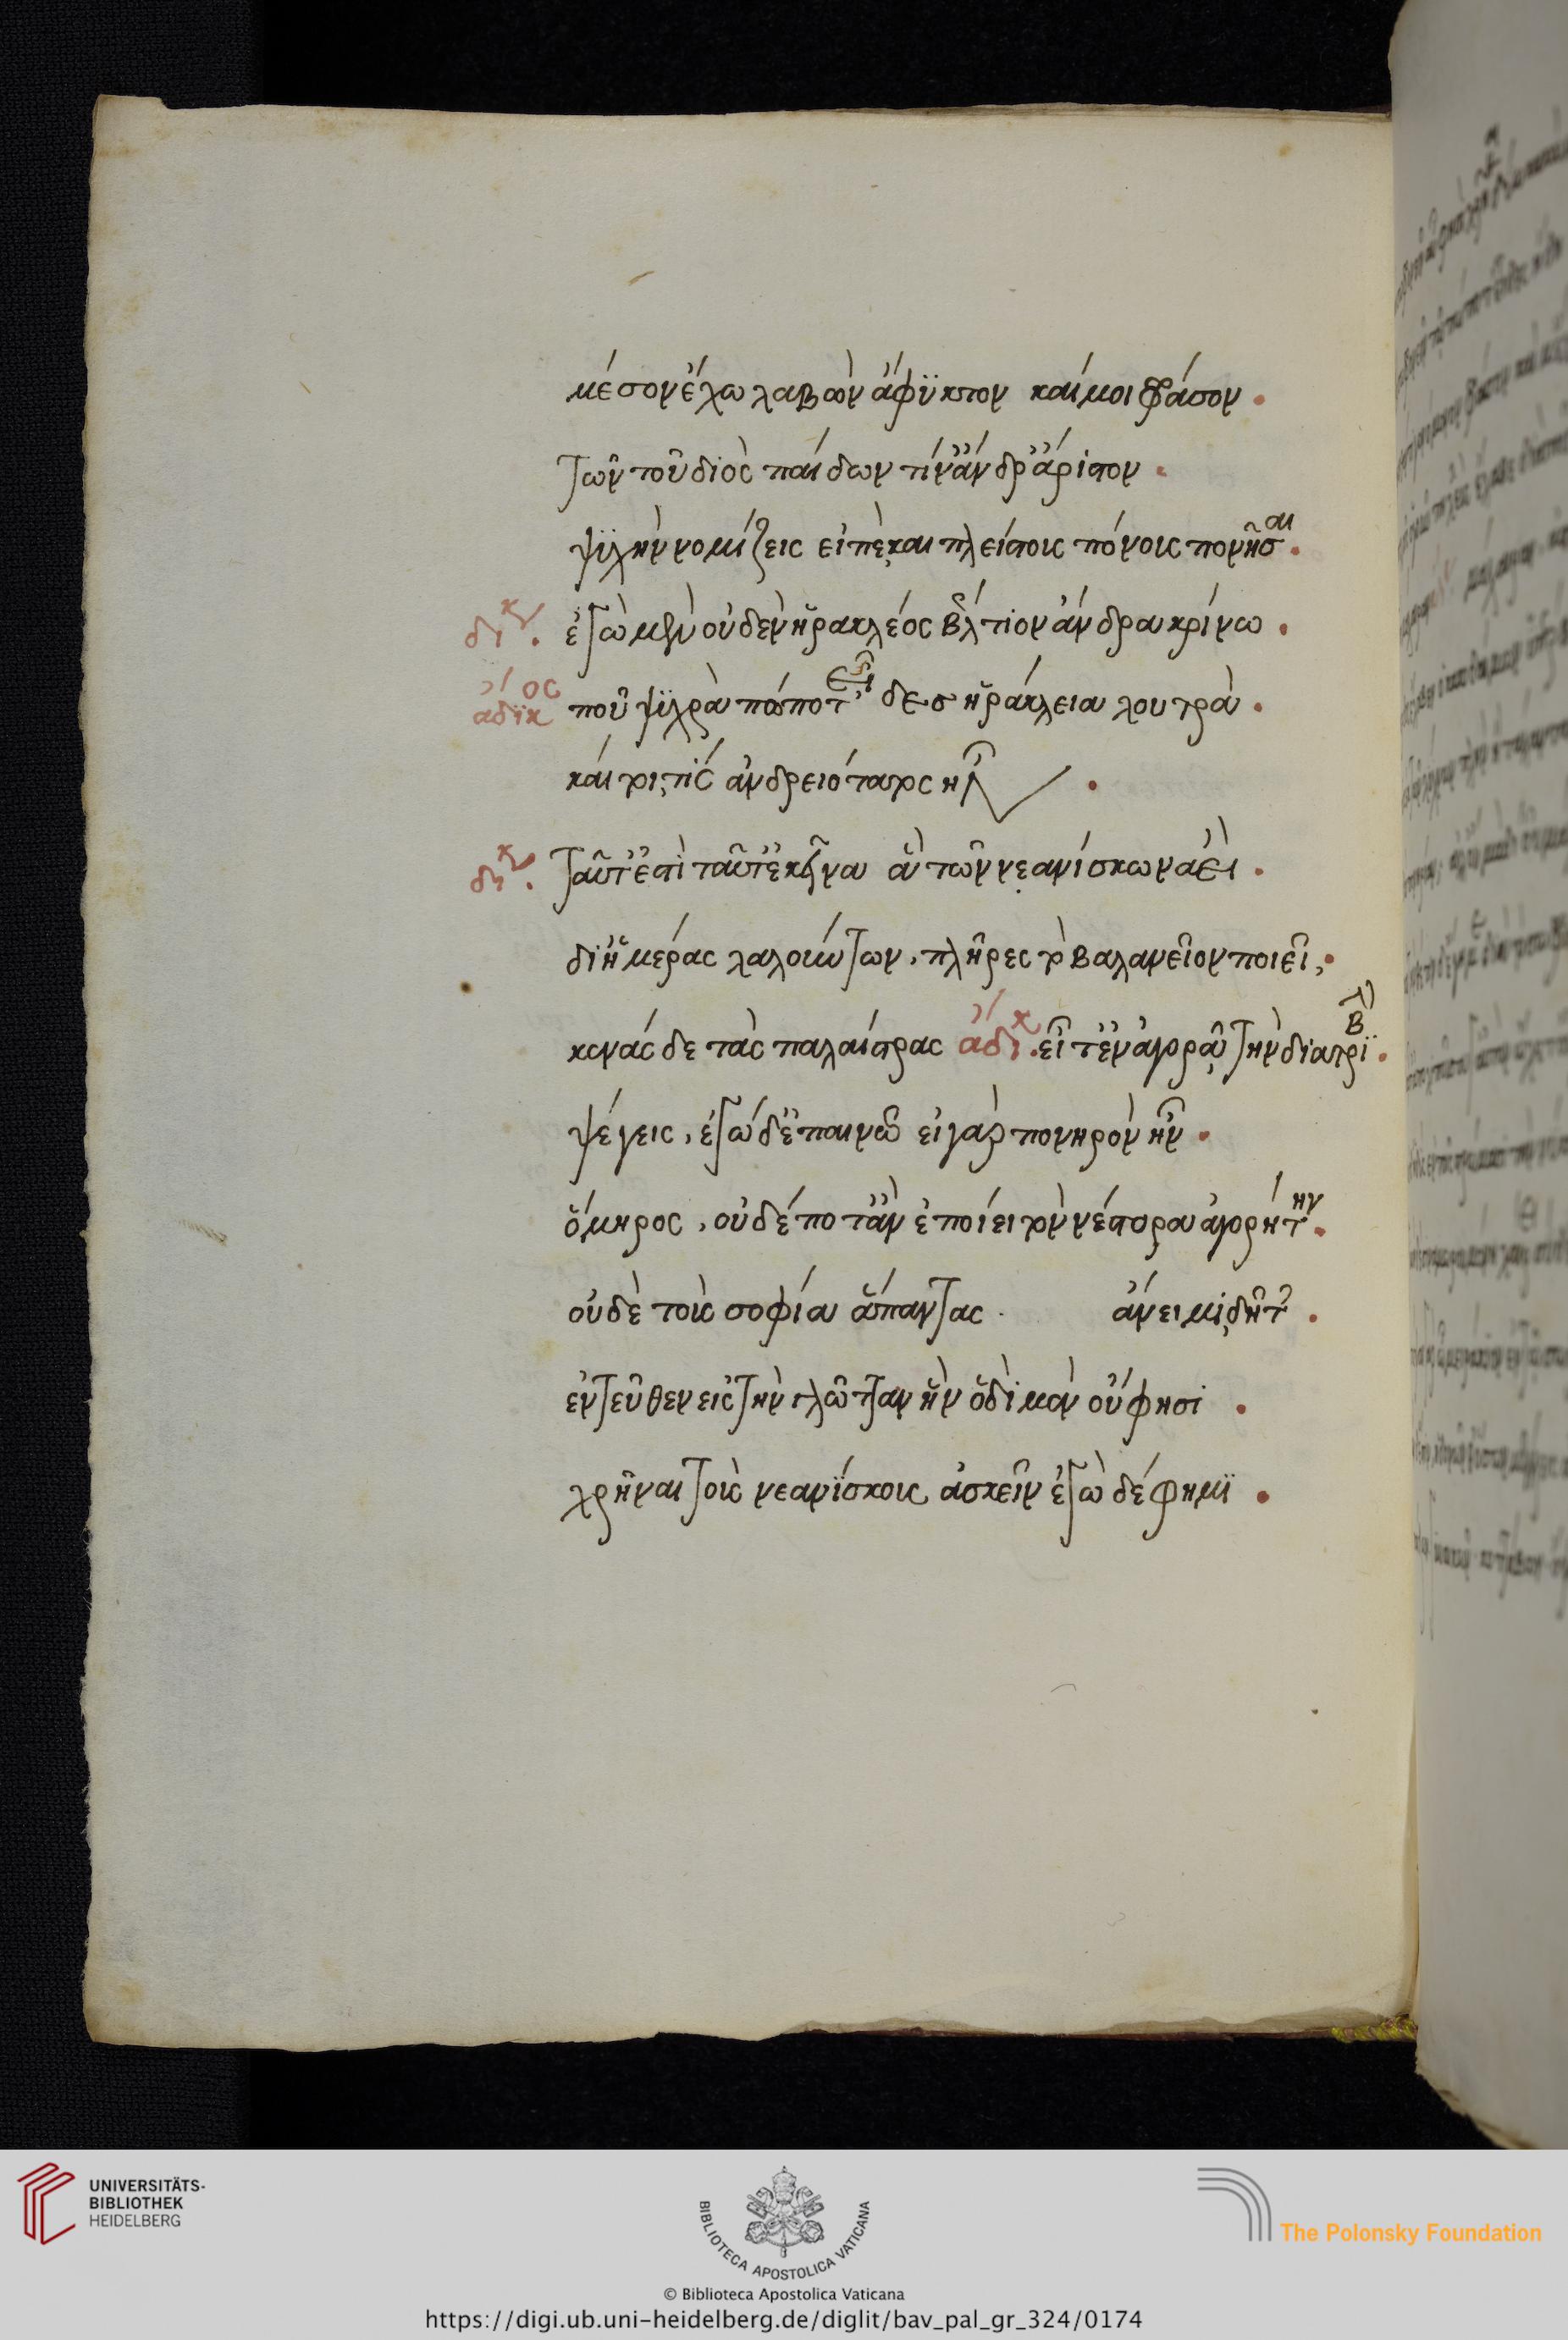 μέσον ἔχω λαβὼν ἄφϋκτον καί μοι φράσον.
τῶν τοῦ διὸς παίδων τίν ἄνδρ ἄριστον.
ψϋχὴν νομίζεις εἰπὲ καὶ πλείστους πόνους πονῆσαι.
δικ. ἐγὼ μὲν οὐδέν ἡρακλέος βελτίον ἄνδρα κρίνω.
ἄδϊκος ποῦ ψϋχρὰ πώποτ' εἶδες ἡράκλεια λουτρά.
καί τοι τίς ἀνδρειότατος ἦν.
δικ. ταῦτ' ἐστὶ ταῦτ' ἐκεῖνα ἃ τῶν νεανίσκων ἀεὶ.
δι ἡμέρας λαλούντων, πλῆρες τὸ βαλανεῖον ποιεῖ,.
κενάς δε τὰς παλαίστρας ἄδικ. εἶτ' ἐν ἀγορᾷ τὴν διατριβ.
ψέγεις, ἐγώ δ' ἐπαινῶ εἰ γὰρ πονηρὸν ἦν.
ὅμηρος, οὐδέποτ ἂν ἐποίει τὸν νέστορα ἀγορήτην.
οὐδὲ τοὺς σοφία ἅπαντας. ἄνειμι δῆτ.
ἐντεῦθεν εἰς τὴν γλῶτταν ἣν ὁδὶ μὲν οὔ φησι.
χρῆναι τοὺς νεανΐσκους ἀσκεῖν ἐγὼ δέ φημϊ.
UNIVERSITÄTS-
BIBLIOTHEK
HEIDELBERG
BIBLIOTECA APOSTOLICA VATICANA
The Polonsky Foundation
© Biblioteca Apostolica Vaticana
https://digi.ub.uni-heidelberg.de/diglit/bav_pal_gr_324/0174